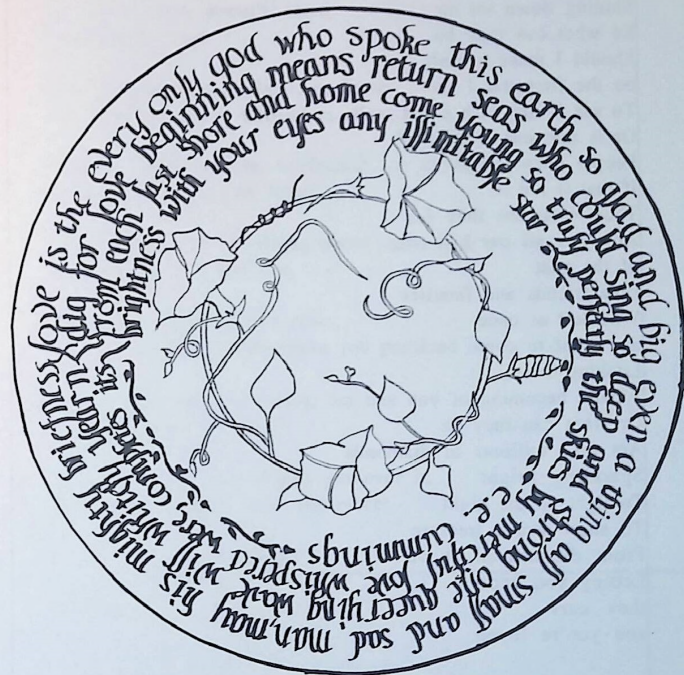 love is the every only god who spoke this earth so glad and big even a thing all small and sad man, may his mighty briefness
dig for love beginning means return seas who could sing so deep and strong one queerying wave will whitely yearn
from each last shore and home come young so truly perfectly the skies by merciful love whispered were, completes its
brightness with your eyes any illimitable star
e.e. cummings